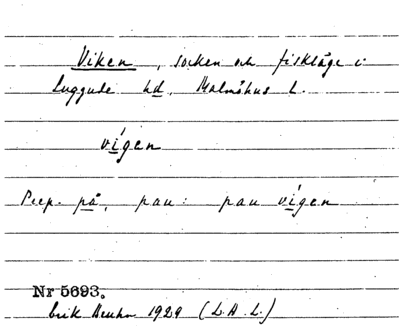 Viken, socken och fiskläge i
Luggude hd, Malmöhus L.
vígen
Prep. på, pau: pau vígen
Nr 5693.
Erik 1929 (L.A.L.)